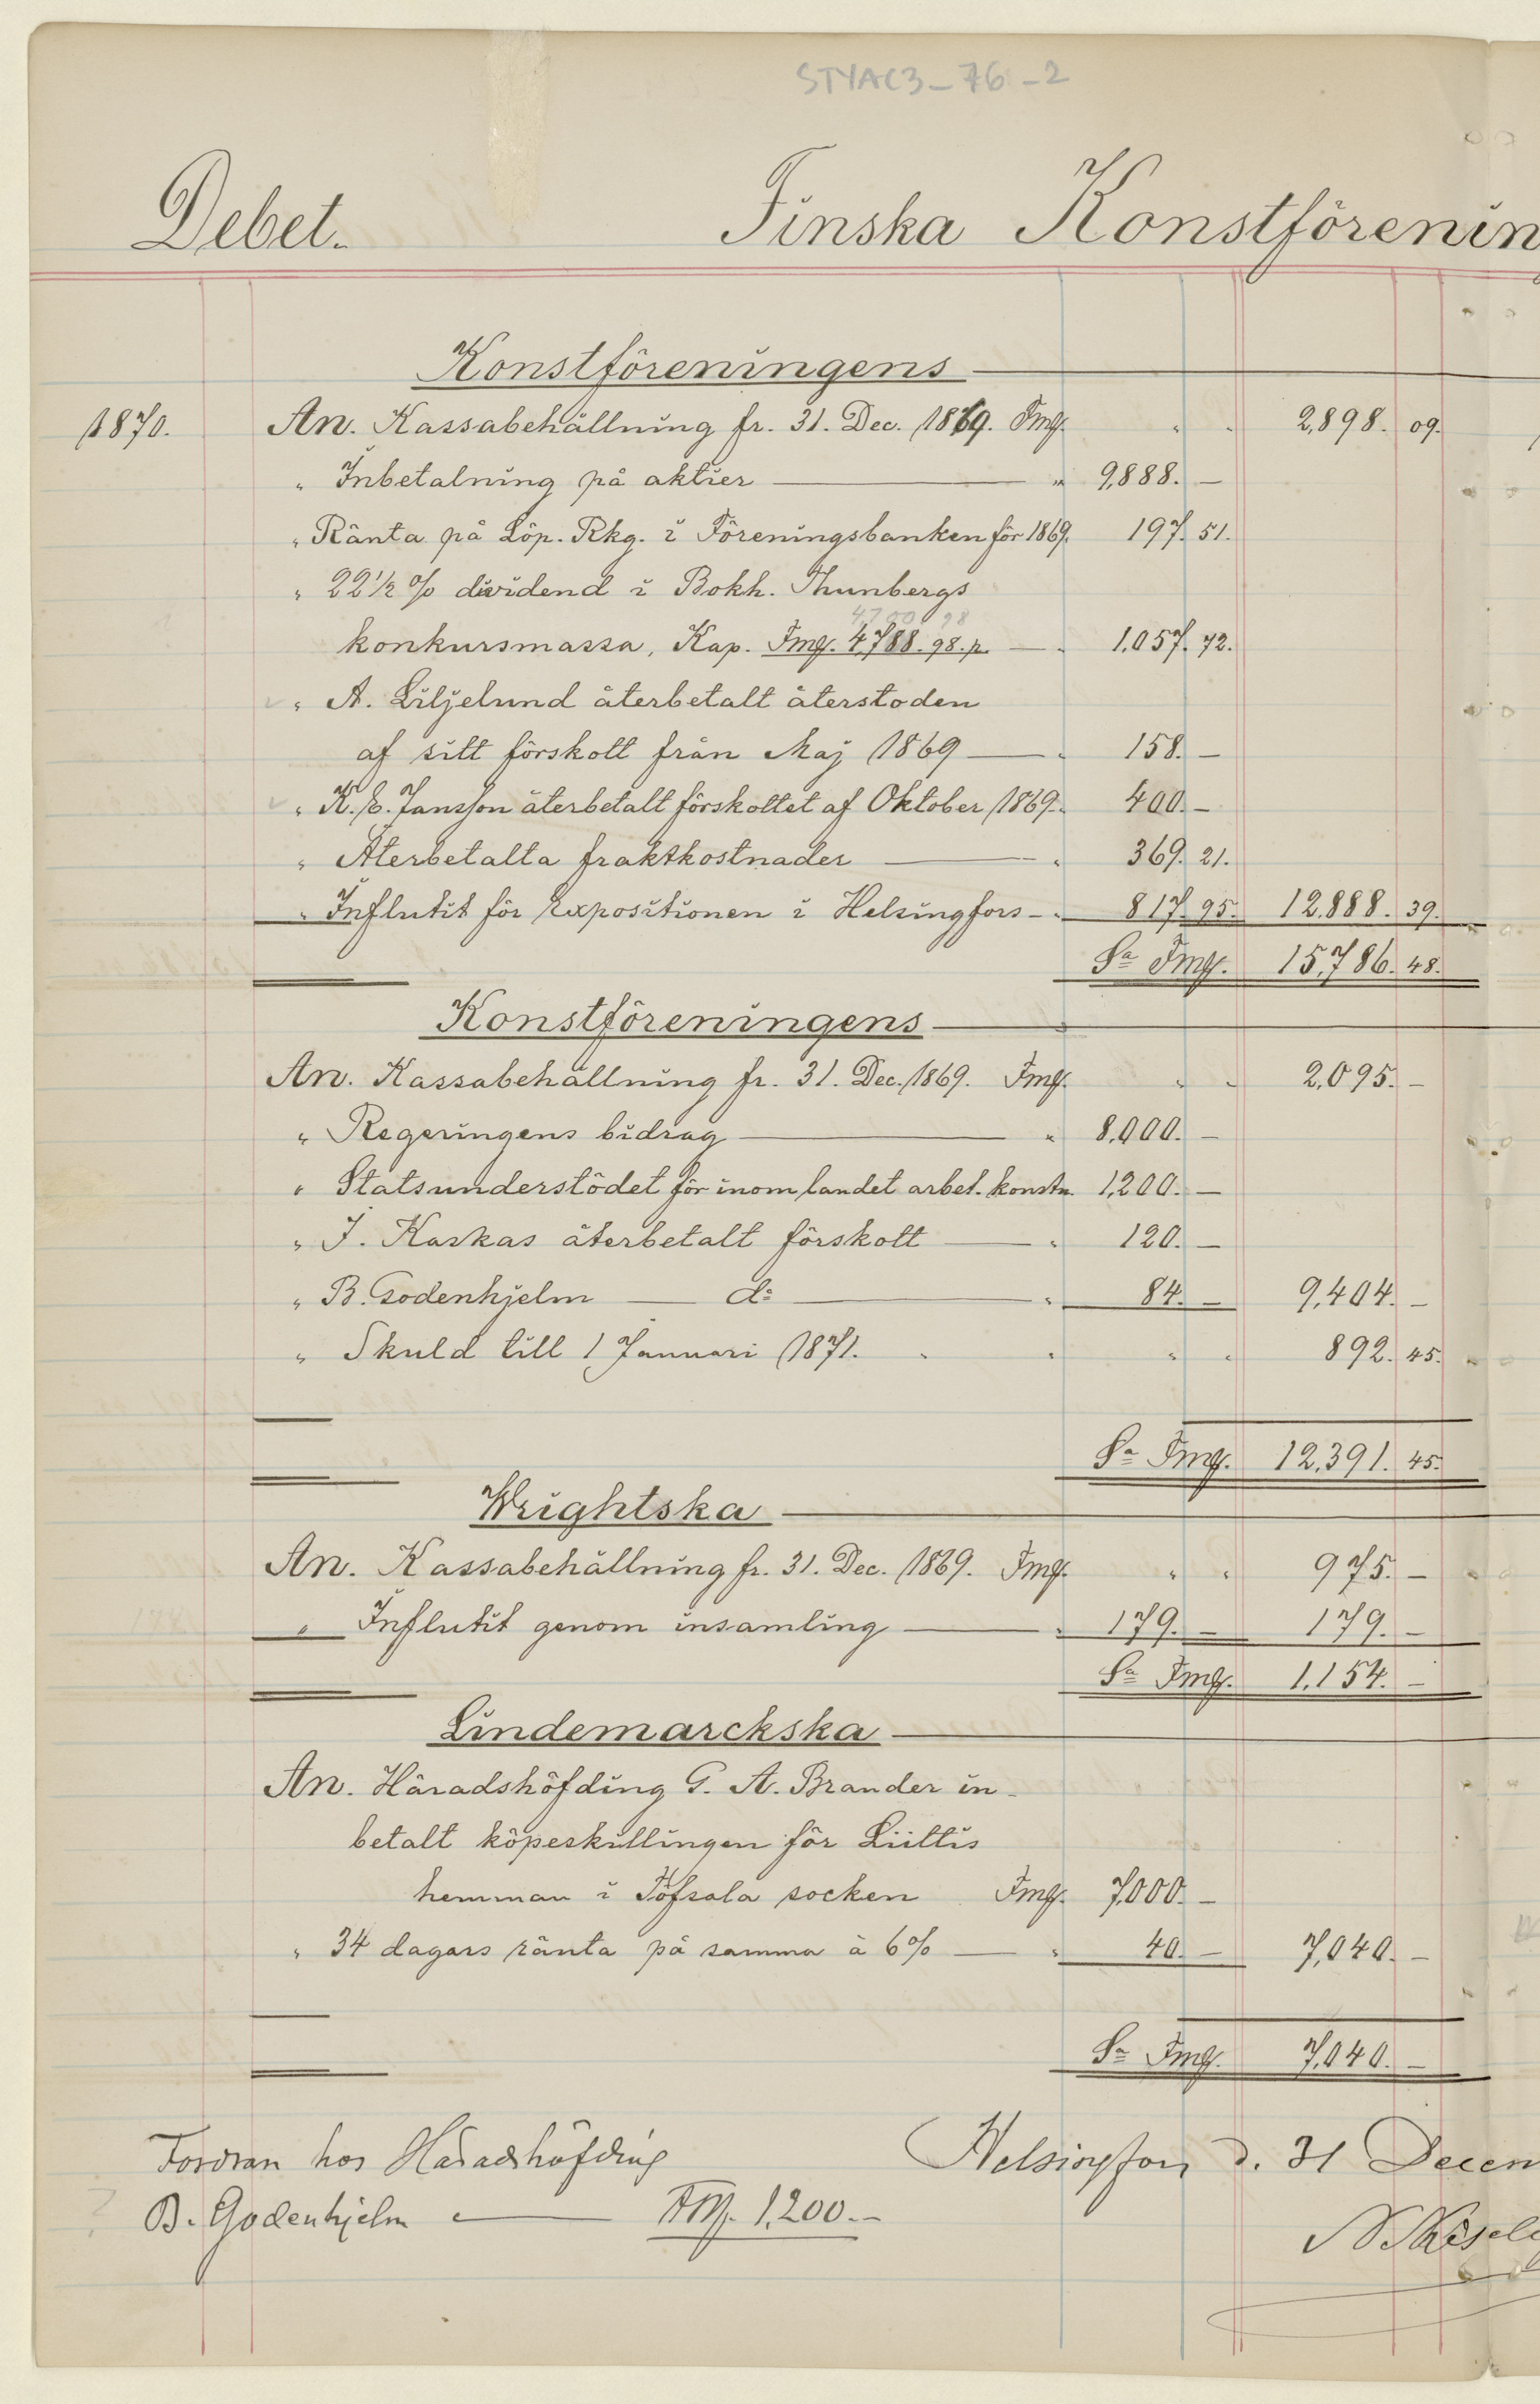 STYAC3-76-2
Debet. Finska Konstförenin
Konstföreningens
1870. An. Kassabehållning fr. 31. Dec. 1869. Fmg. " " 2,898. 09.
" Inbetalning på aktier — " 9,888. —
" Ränta på Löp. Rkg. i Föreningsbanken för 1869. 197. 51.
" 22 1/2 % dividend i Bokh. Thunbergs
4,700 98
konkursmassa, Kap. Fmg. 4,788. 98. p. — " 1,057. 72.
" A. Liljelund återbetalt återstoden
af sitt förskott från Maj 1869 — " 158. —
" K. E. Jansson återbetalt förskottet af Oktober 1869. " 400. —
" Återbetalta fraktkostnader — " 369. 21.
" Influtit för Expositionen i Helsingfors — " 817. 95. 12,888. 39.
Sa Fmg. 15,786. 48.
Konstföreningens
An. Kassabehållning fr. 31. Dec. 1869. Fmg. " " 2,095. —
" Regeringens bidrag — " 8,000. —
" Statsunderstödet för inom landet arbet. konstn. 1,200. —
" J. Karkas återbetalt förskott — " 120. —
" B. Godenhjelm — d:o — " 84. — 9,404. —
" Skuld till 1 Januari 1871. " " " " 892. 45.
Sa Fmg. 12,391. 45.
Wrightska
An. Kassabehållning fr. 31. Dec. 1869. Fmg. " " 975. —
" Influtit genom insamling — " 179. — 179. —
Sa Fmg. 1,154. —
Lindemarckska
An. Häradshöfding G. A. Brander in-
betalt köpeskillingen för Liittis
hemman i Töfsala socken Fmg. 7,000. —
" 34 dagars ränta på samma à 6% — " 40. — 7,040. —
Sa Fmg. 7,040. —
Fordran hos Häradshöfding
B. Godenhjelm — FM. 1,200. —
Helsingfors d. 31 Decem